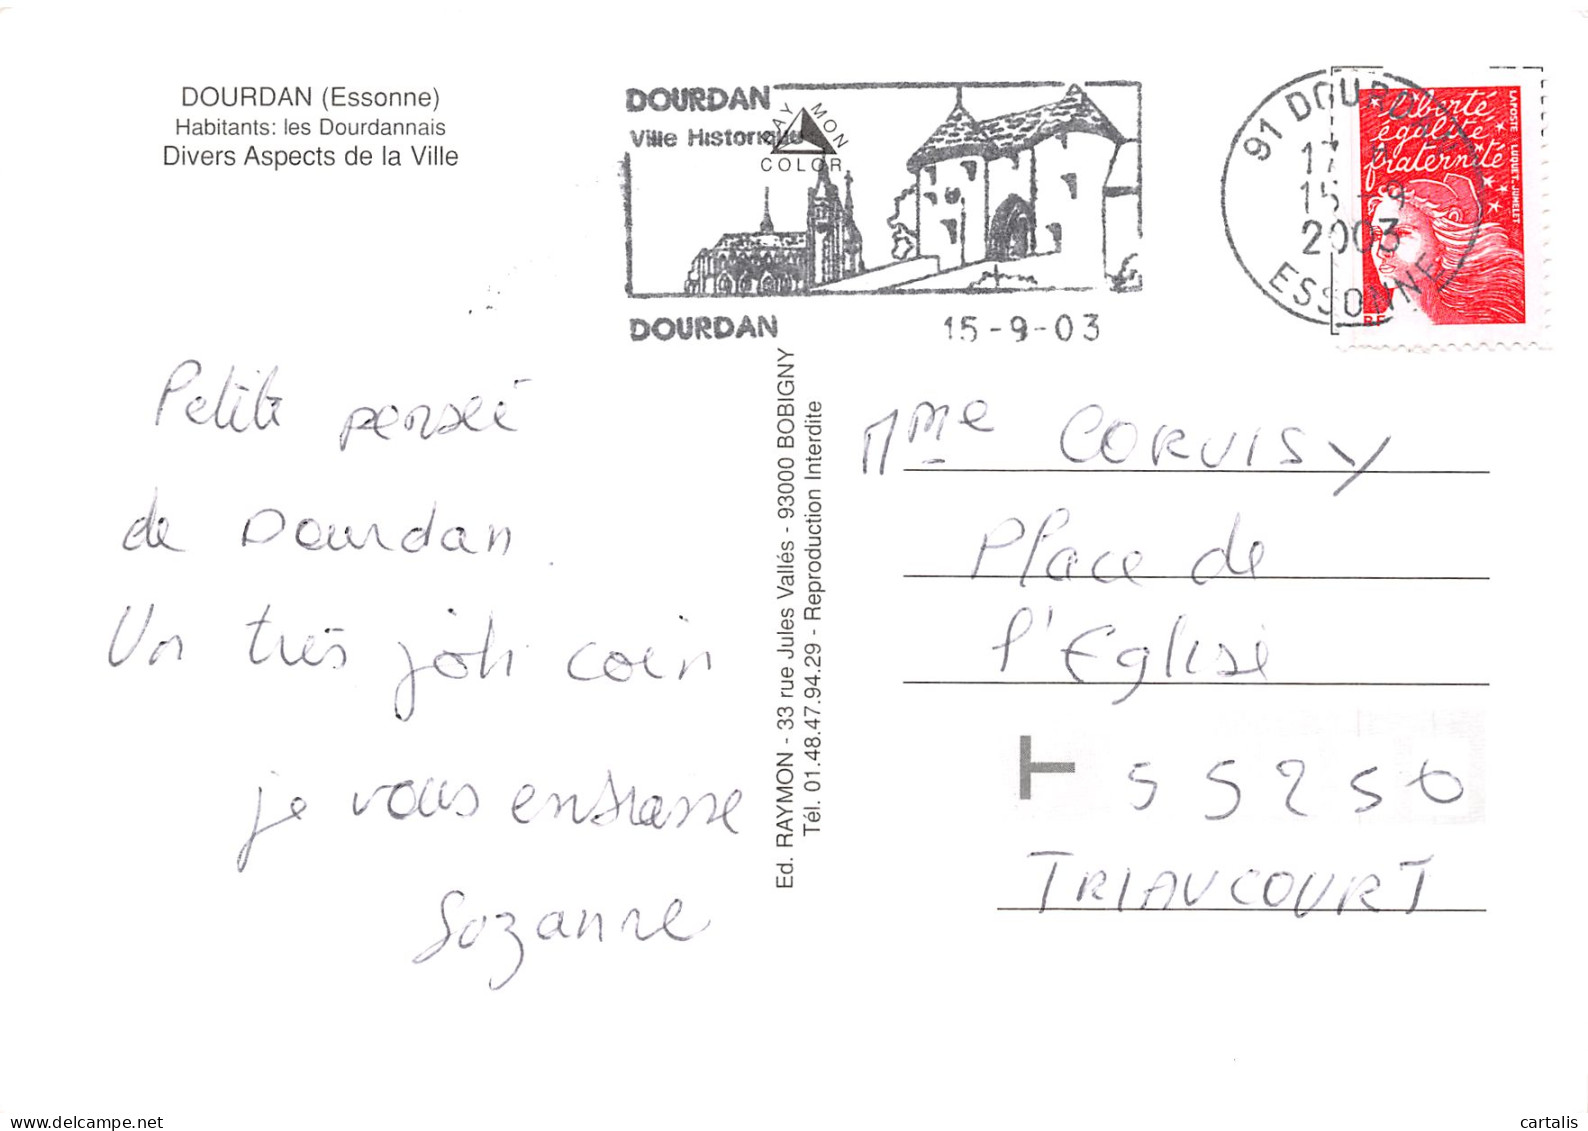 DOURDAN (Essonne)
Habitants: les Dourdannais
Divers Aspects de la Ville
DOURDAN
Ville Historique
RAYMON
COLOR
DOURDAN
15-9-03
91 DOURDAN
17
15-9
2003
ESSONNE
liberté
égalité
fraternité
LA POSTE LUQUET-JUMELET
RF
Petite pensée
de Dourdan
Un très joli coin
je vous embrasse
Suzanne
Ed. RAYMON - 33 rue Jules Vallés - 93000 BOBIGNY
Tél. 01.48.47.94.29 - Reproduction Interdite
Mme CORVISY
Place de
l'Eglise
55250
TRIAUCOURT
cartalis
www.delcampe.net